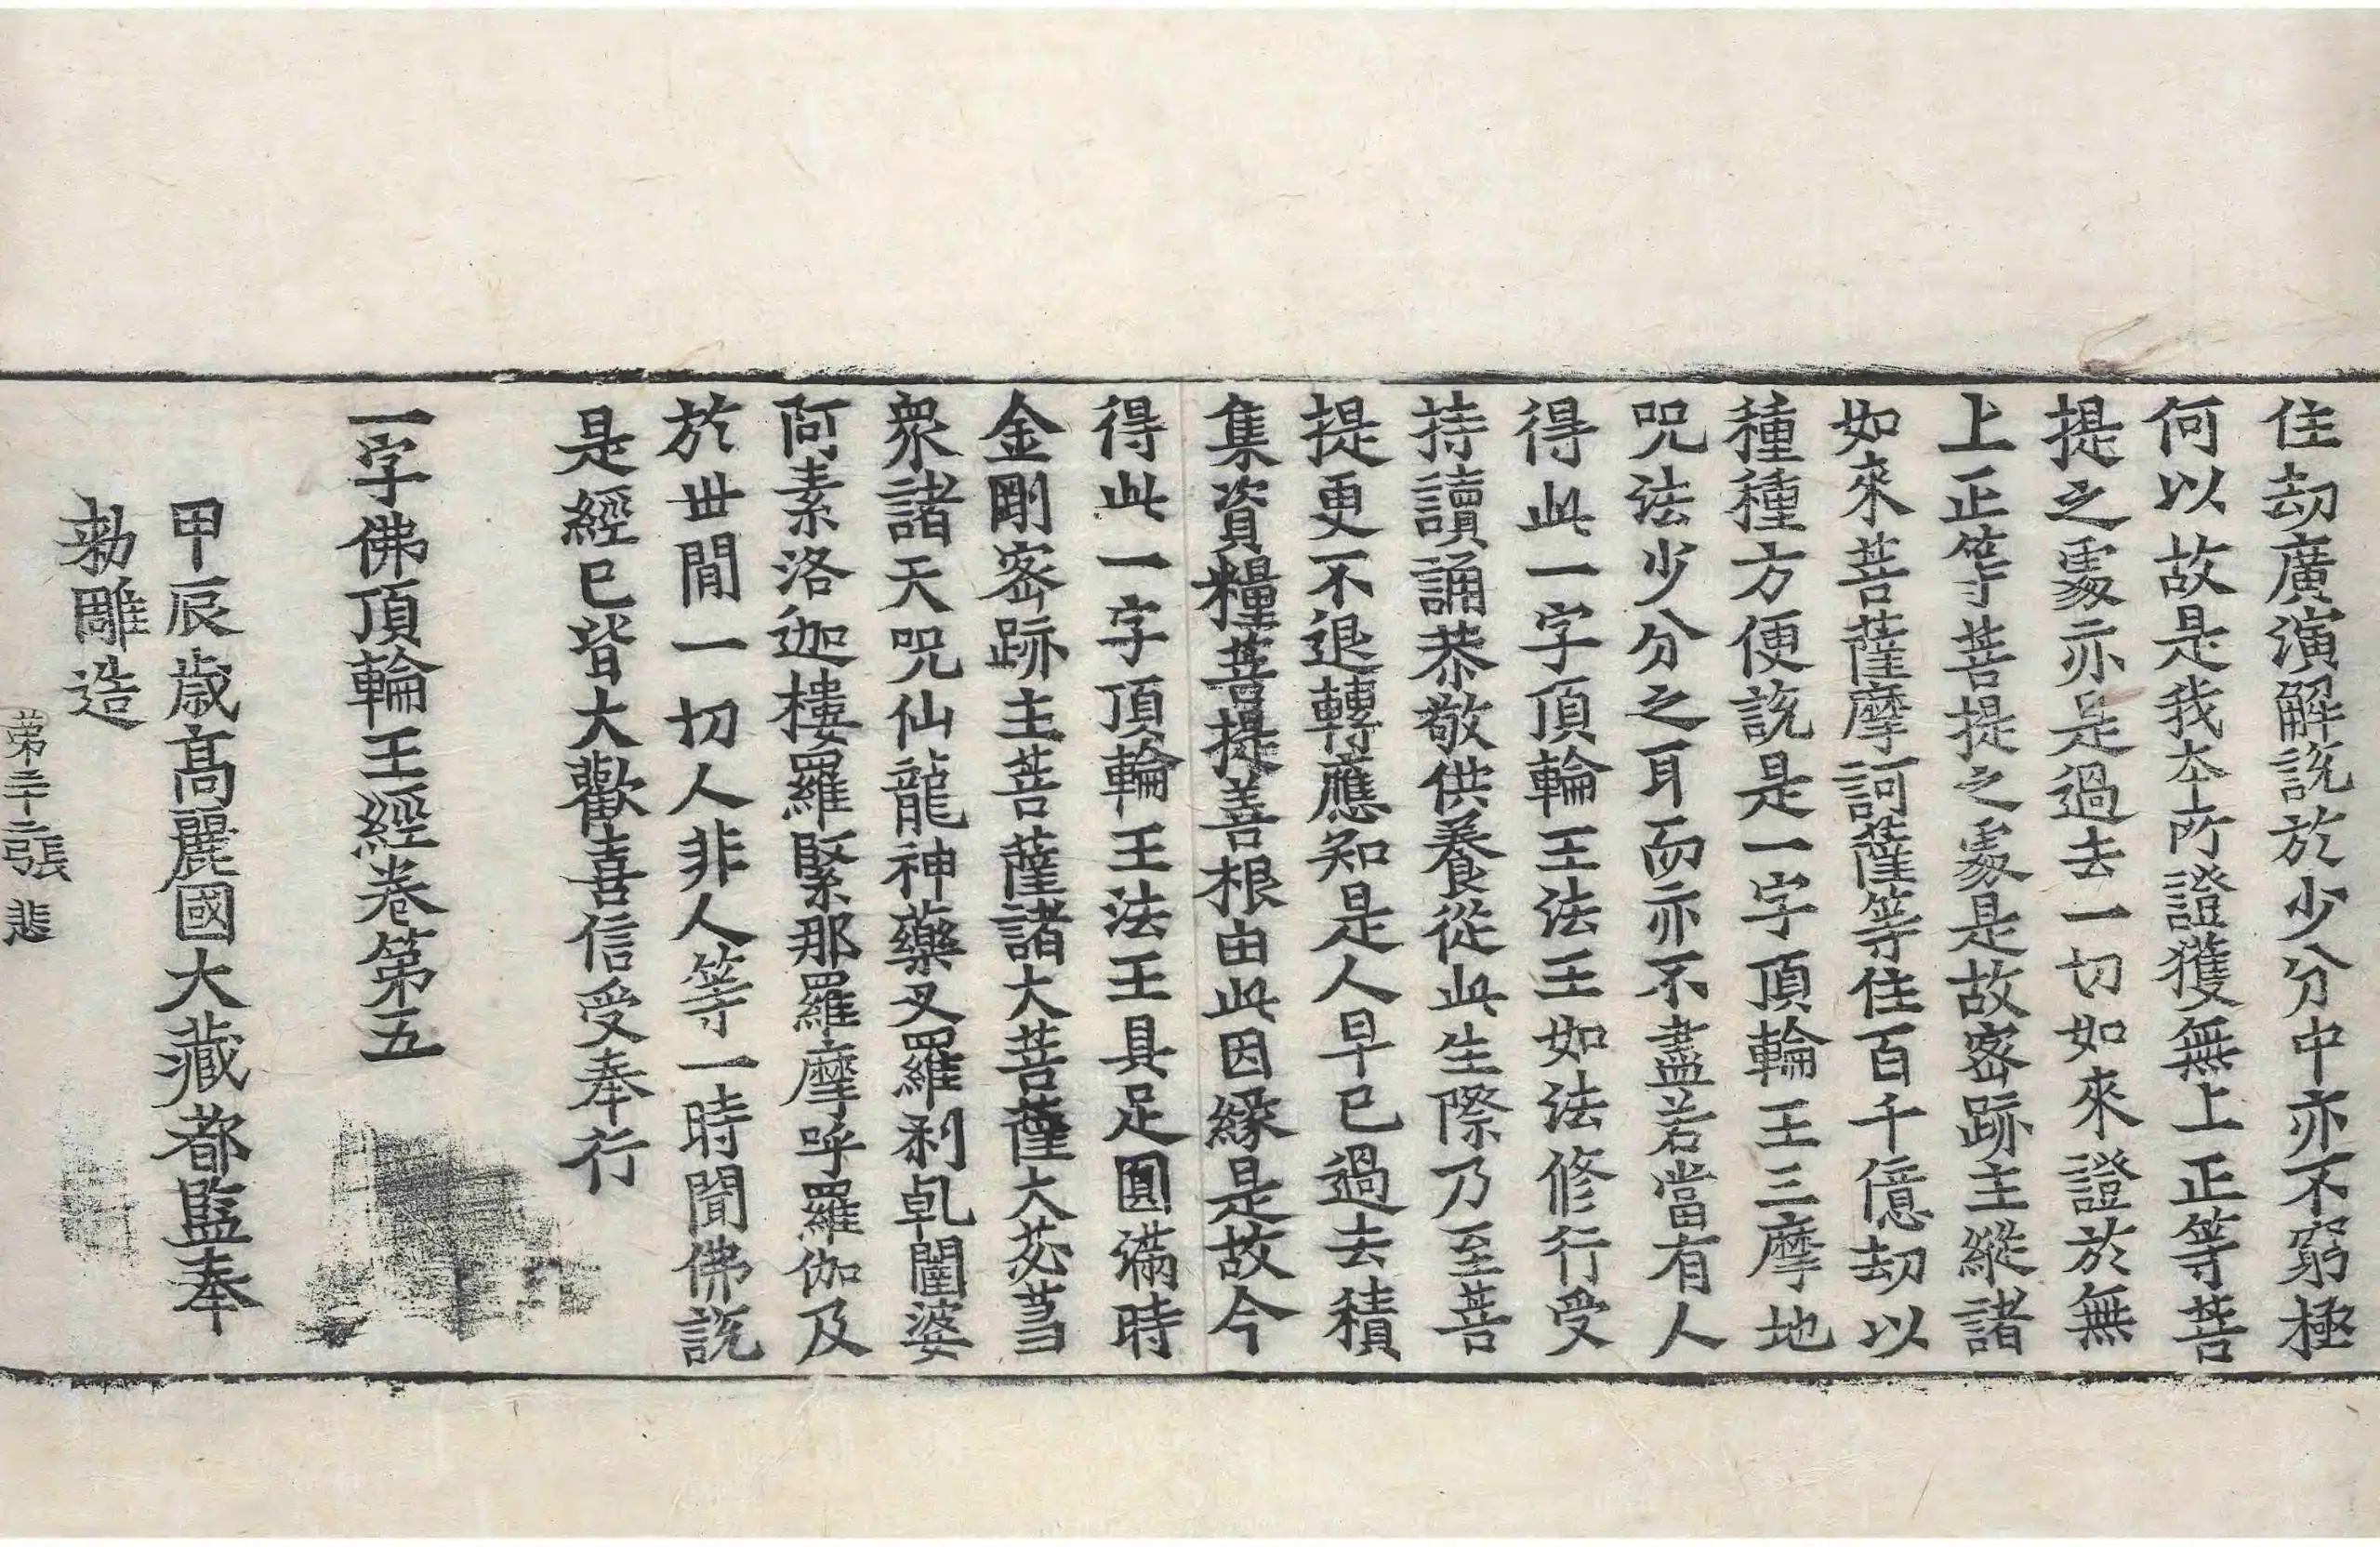 住劫廣演解說於少分中亦不窮極
何以故是我本所證獲無上正等菩
提之處亦是過去一切如來證於無
上正等菩提之處是故密跡主縱諸
如來菩薩摩訶薩等住百千億劫以
種種方便說是一字頂輪王三摩地
呪法少分之耳而亦不盡若當有人
得此一字頂輪王法王如法修行受
持讀誦恭敬供養從此生際乃至菩
提更不退轉應知是人早已過去積
集資糧菩提善根由此因緣是故今
得此一字頂輪王法王具足圓滿時
金剛密跡主菩薩諸大菩薩大苾芻
衆諸天呪仙龍神藥叉羅剎乹闥婆
阿素洛迦樓羅緊那羅摩呼羅伽及
於世閒一切人非人等一時聞佛說
是經已皆大歡喜信受奉行
一字佛頂輪王經卷第五
甲辰歲高麗國大藏都監奉
勅雕造
第三十二張 悲